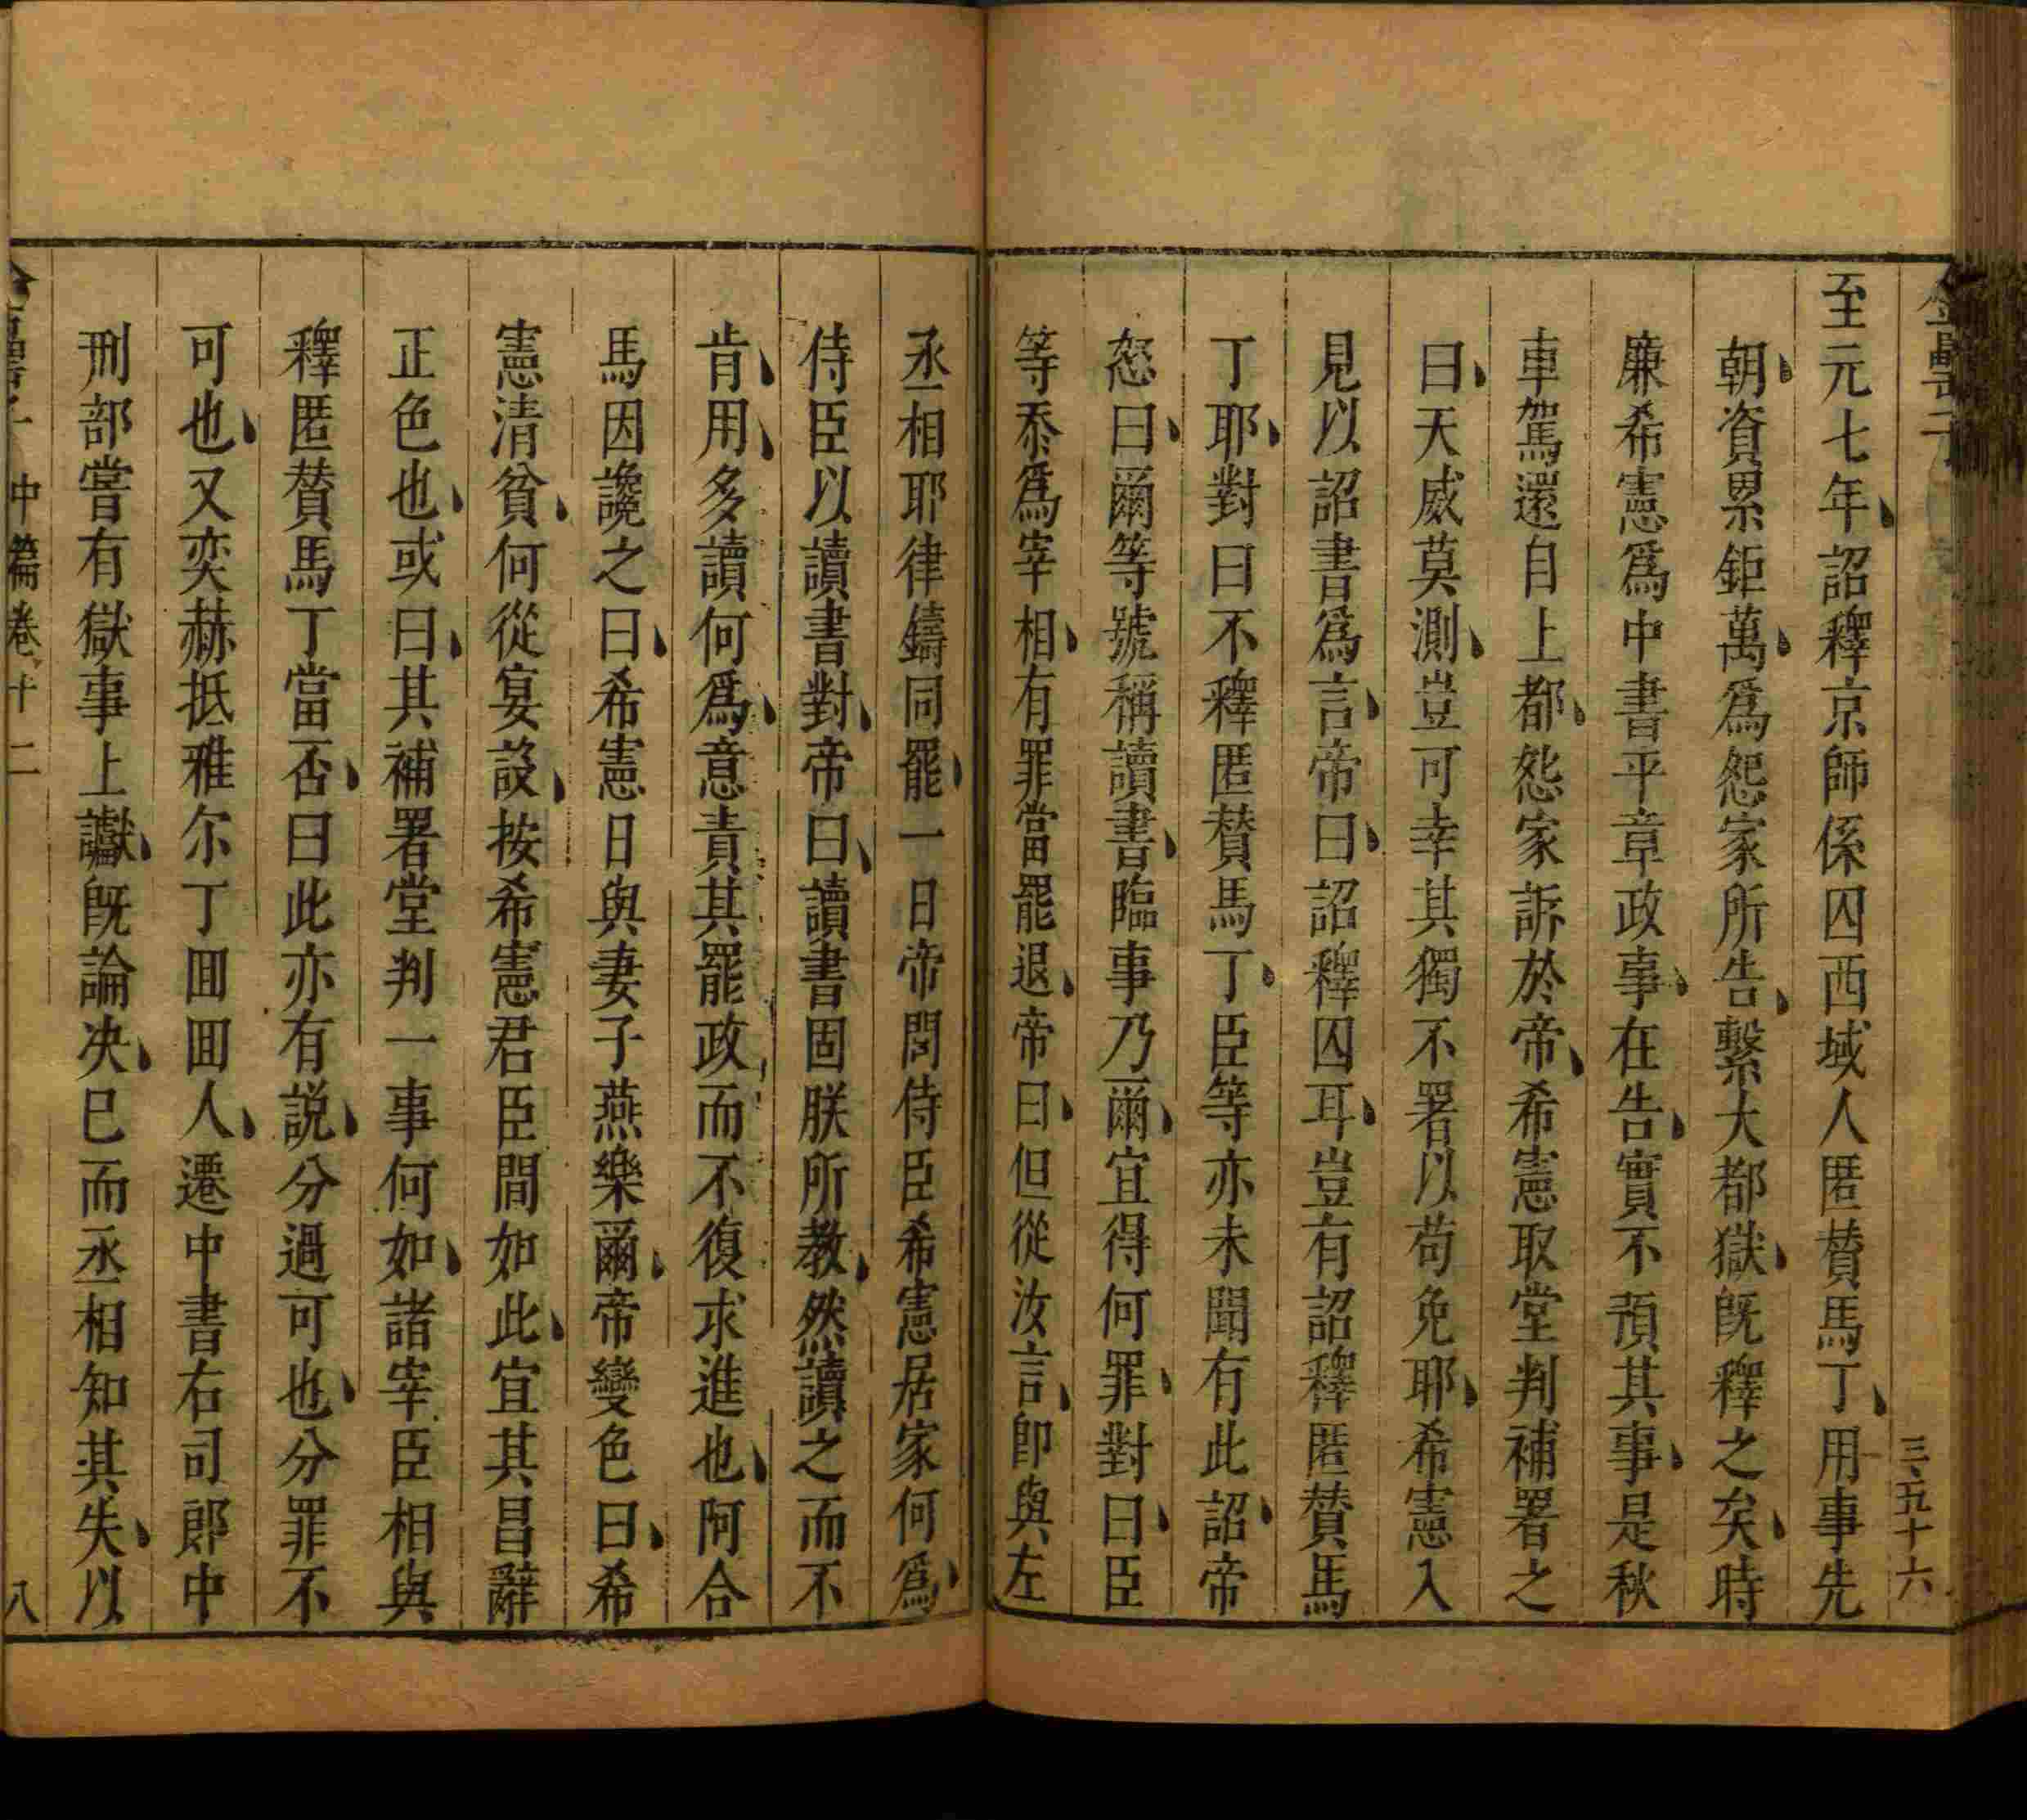 三百五十六
至元七年詔釋京師係囚西域人匿贊馬丁用事先
朝資累鉅萬爲怨家所告繫大都獄旣釋之矣時
廉希憲爲中書平章政事在告實不預其事是秋
車駕還自上都怨家訴於帝希憲取堂判補署之
曰天威莫測豈可幸其獨不署以苟免耶希憲入
見以詔書爲言帝曰詔釋囚耳豈有詔釋匿贊馬
丁耶對曰不釋匿贊馬丁臣等亦未聞有此詔帝
怒曰爾等號稱讀書臨事乃爾宜得何罪對曰臣
等忝爲宰相有罪當罷退帝曰但從汝言卽與左
丞相耶律鑄同罷一日帝問侍臣希憲居家何爲
侍臣以讀書對帝曰讀書固朕所教然讀之而不
肯用多讀何爲意責其罷政而不復求進也阿合
馬因讒之曰希憲日與妻子燕樂爾帝變色曰希
憲清貧何從宴設按希憲君臣間如此宜其昌辭
正色也或曰其補署堂判一事何如諸宰臣相與
釋匿贊馬丁當否曰此亦有説分過可也分罪不
可也又奕赫抵雅尔丁囬囬人遷中書右司郎中
刑部嘗有獄事上讞旣論决巳而丞相知其失以
中篇卷十二
八